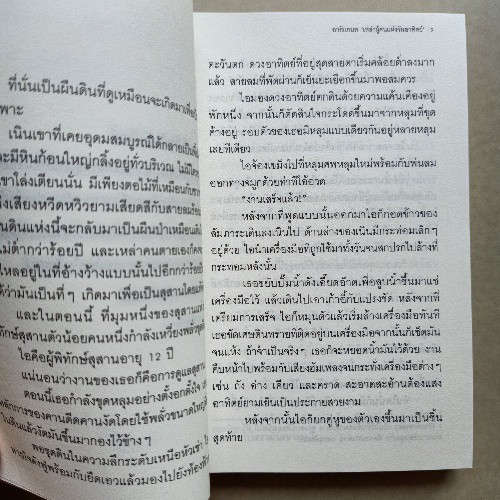 ที่นั่นเป็นผืนดินที่ดูเหมือนจะเกิดมาเพื่อ
พาะ
เนินเขาที่เคยอุดมสมบูรณ์ได้กลายเป็นพื้น
ละมีหินก้อนใหญ่กลิ้งอยู่ทั่วบริเวณ ไม่มีใคร
เขาโล่งเตียนนั่น มีเพียงตอไม้ที่เหมือนกับซาก
งเสียงหวีดหวิวยามเสียดสีกับสายลมร้อน
นดินแห่งนี้จะกลับมาเป็นผืนป่าเหมือนเดิม
ไม่ต่ำกว่าร้อยปี และเหล่าคนตายเองก็คง
ไหลอยู่ในที่อ้างว้างแบบนั้นไปอีกกว่าร้อยปี
ด้ว่ามันเป็นที่ๆ เกิดมาเพื่อเป็นสุสานโดย
และในตอนนี้ ที่มุมหนึ่งของสุสาน
สุสานตัวน้อยคนหนึ่งกำลังเหวี่ยงพลั่วขุด
ไอคือผู้พิทักษ์สุสานอายุ 12 ปี
แน่นอนว่างานของเธอก็คือการดูแลสุสาน
ตอนนี้เธอกำลังขุดหลุมอย่างตั้งอกตั้งใจ
หลักการของคานดีดคานงัดโดยใช้พลั่วขนาดใหญ่
ในดินแล้วงัดมันขึ้นมากองไว้ข้างๆ
พอขุดดินในความลึกระดับเหนือหัวเข่า ไอ
ตะวันตก ดวงอาทิตย์ที่อยู่สุดสายตาเริ่มคล้อยต่ำลงมาก
แล้ว สายลมที่พัดผ่านก็เย็นยะเยือกขึ้นมาพอสมควร
ไอมองดวงอาทิตย์ตกดินด้วยความแค้นเคืองอยู่
พักหนึ่ง จากนั้นก็ตัดสินใจกระโดดขึ้นมาจากหลุมที่ขุด
ค้างอยู่ รอบตัวของเธอมีหลุมแบบเดียวกันอยู่หลายหลุม
เลยทีเดียว
ไอจ้องเขม็งไปที่หลุมศพหลุมใหม่พร้อมกับพ่นลม
ออกทางจมูกด้วยท่าทีโอ้อวด
"งานเสร็จแล้ว!"
หลังจากที่พูดแบบนั้นออกมาไอก็กอดข้าวของ
สัมภาระเดินลงเนินไป ด้านล่างของเนินมีกระท่อมเล็กๆ
อยู่ด้วย ไอนำเครื่องมือที่ถูกใช้มาทั้งวันจนสกปรกไปล้างที่
กระท่อมหลังนั้น
เธอขยับปั๊มน้ำดังเอี๊ยดอ๊าดเพื่อสูบน้ำขึ้นมาแช่
เครื่องมือไว้ แล้วเดินไปเอาเก้าอี้กับแปรงขัด หลังจากที่
เตรียมการเสร็จ ไอก็หมุนตัวแล้วเริ่มล้างเครื่องมือทันที
เธอขัดเศษดินทรายที่ติดอยู่บนเครื่องมือจากนั้นก็เช็ดมัน
จนแห้ง ถ้าจำเป็นจริงๆ เธอก็จะหยอดน้ำมันไว้ด้วย งาน
คืบหน้าไปพร้อมกับเสียงฮัมเพลงจนกระทั่งเครื่องมือต่างๆ
เช่น ถัง อ่าง เคียว และคราด สะอาดสะอ้านต้องแสง
อาทิตย์ยามเย็นเป็นประกายสวยงาม
หลังจากนั้นไอก็ยกคู่หูของตัวเองขึ้นมาเป็นชิ้น
สุดท้าย